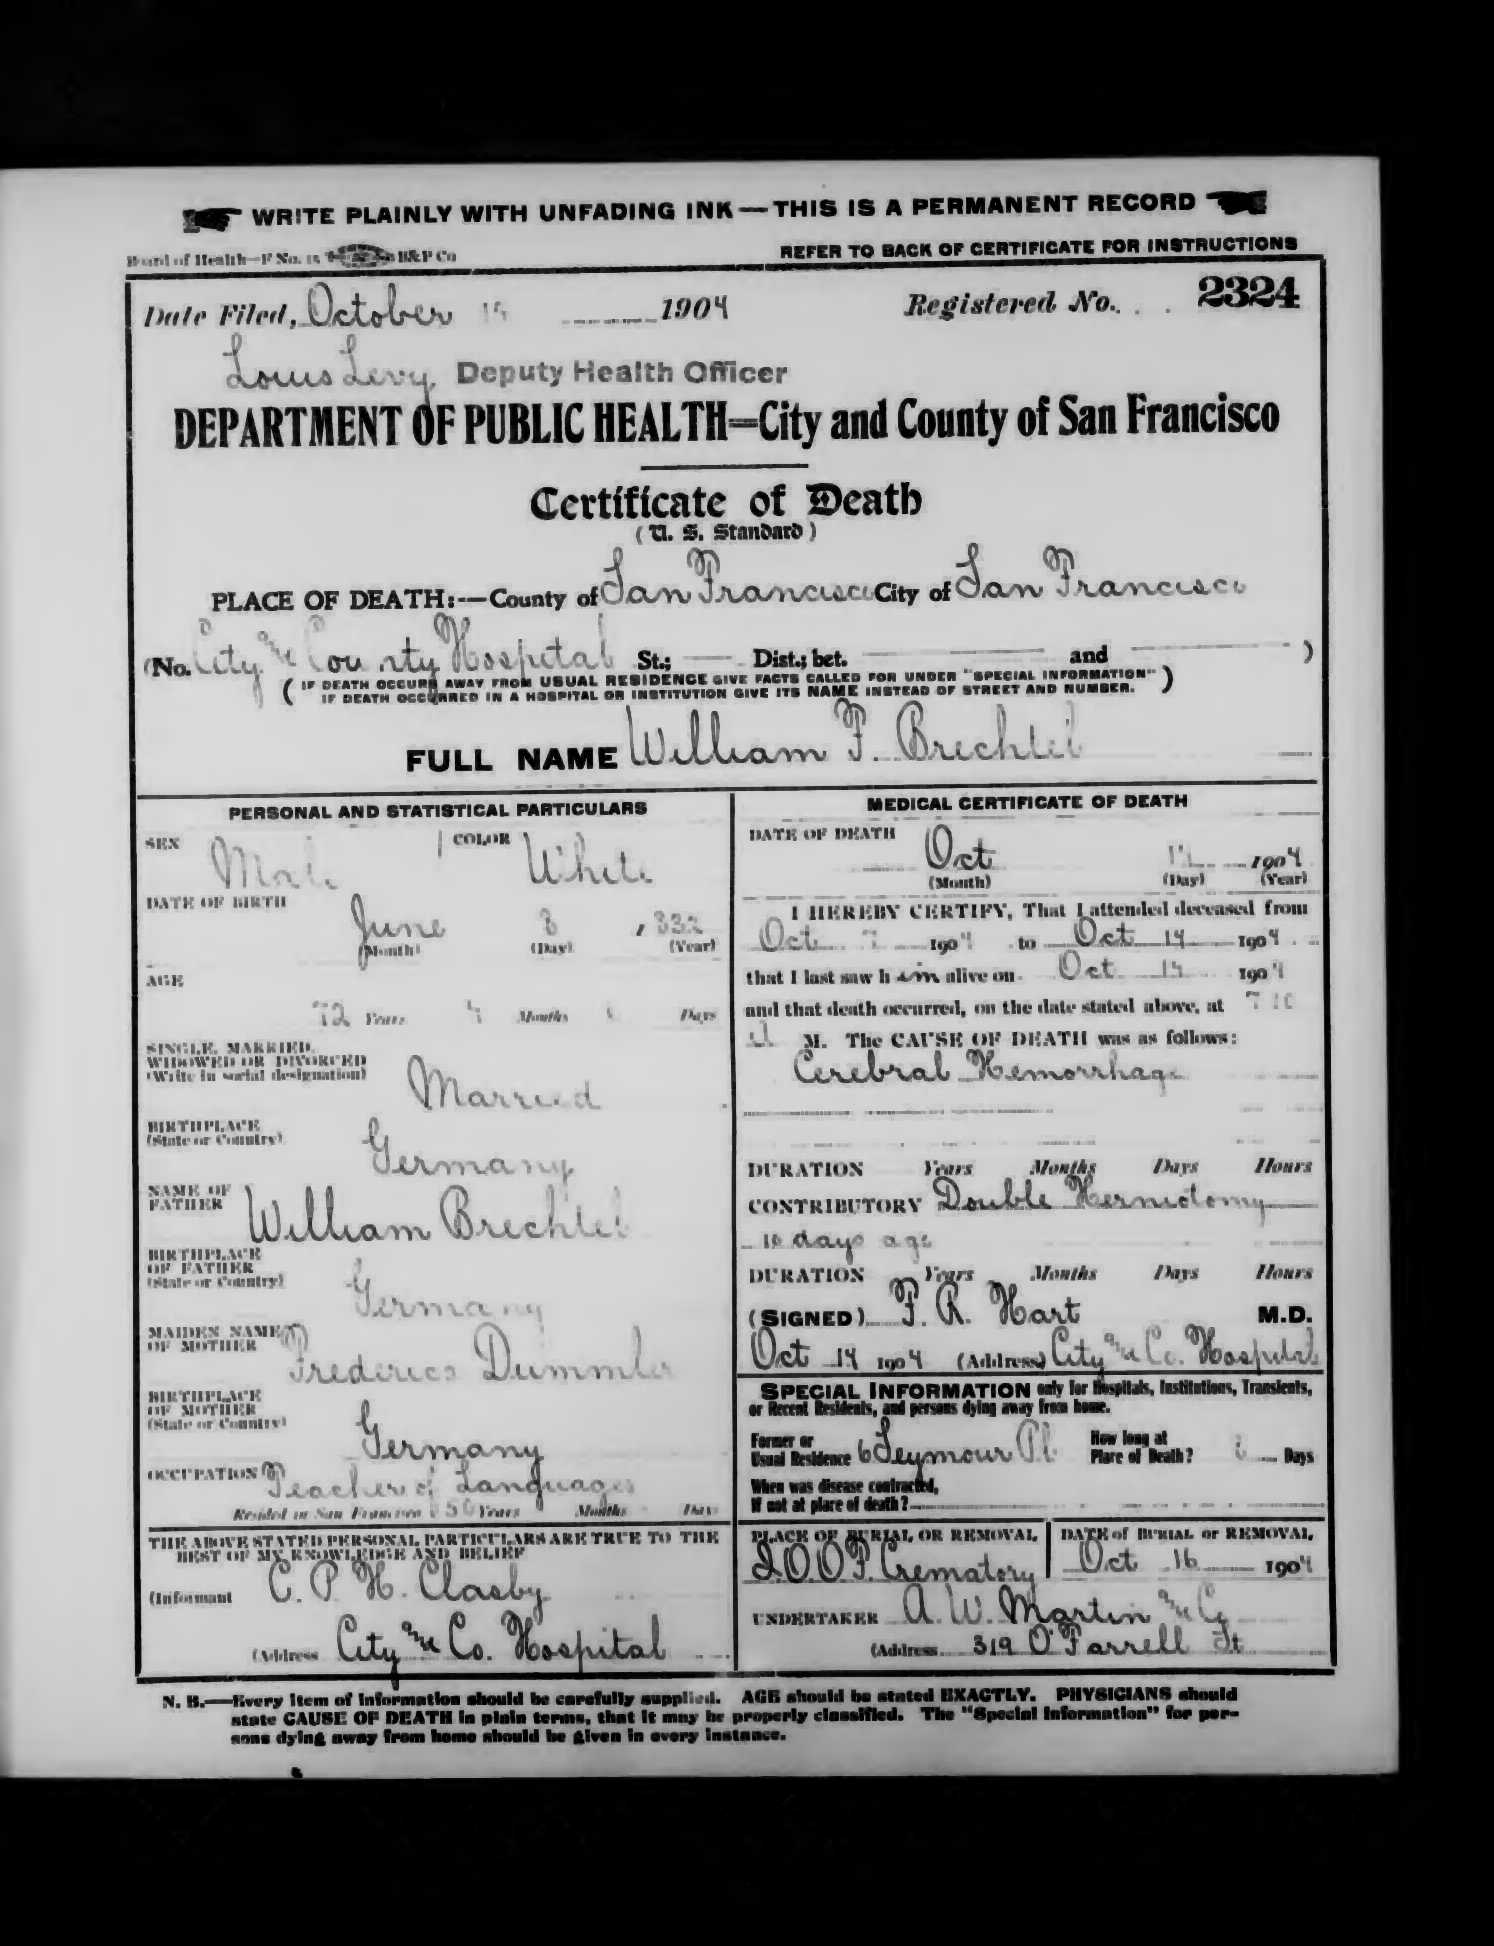 WRITE PLAINLY WITH UNFADING INK—THIS IS A PERMANENT RECORD
Board of Health—F No. 15 H&P Co
REFER TO BACK OF CERTIFICATE FOR INSTRUCTIONS
Date Filed, October 1904 Registered No. 2324
Louis Levy, Deputy Health Officer
DEPARTMENT OF PUBLIC HEALTH—City and County of San Francisco
Certificate of Death
(U. S. Standard)
PLACE OF DEATH:—County of San Francisco City of San Francisco
(No. City and County Hospital St.; Dist.; bet. and )
(IF DEATH OCCURS AWAY FROM USUAL RESIDENCE GIVE FACTS CALLED FOR UNDER "SPECIAL INFORMATION"
IF DEATH OCCURRED IN A HOSPITAL OR INSTITUTION GIVE ITS NAME INSTEAD OF STREET AND NUMBER.)
FULL NAME William F. Brechtel
PERSONAL AND STATISTICAL PARTICULARS
SEX Male COLOR White
DATE OF BIRTH
June 8 , 832
(Month) (Day) (Year)
AGE
72 Years 4 Months Days
SINGLE, MARRIED,
WIDOWED OR DIVORCED
(Write in social designation) Married
BIRTHPLACE
(State or Country) Germany
NAME OF
FATHER William Brechtel
BIRTHPLACE
OF FATHER
(State or Country) Germany
MAIDEN NAME
OF MOTHER Frederica Dummler
BIRTHPLACE
OF MOTHER
(State or Country) Germany
OCCUPATION Teacher of Languages
Resided in San Francisco 50 Years Months Days
THE ABOVE STATED PERSONAL PARTICULARS ARE TRUE TO THE
BEST OF MY KNOWLEDGE AND BELIEF
(Informant C. P. H. Clasby
(Address City and Co. Hospital
MEDICAL CERTIFICATE OF DEATH
DATE OF DEATH
Oct 14 1904
(Month) (Day) (Year)
I HEREBY CERTIFY, That I attended deceased from
Oct 7 1904 to Oct 14 1904
that I last saw him alive on Oct 14 1904
and that death occurred, on the date stated above, at 7 10
M. The CAUSE OF DEATH was as follows:
Cerebral Hemorrhage
DURATION Years Months Days Hours
CONTRIBUTORY Double Herniotomy
10 days age
DURATION Years Months Days Hours
(SIGNED) F. R. Hart M.D.
Oct 14 1904 (Address) City and Co. Hospital
SPECIAL INFORMATION only for Hospitals, Institutions, Transients,
or Recent Residents, and persons dying away from home.
Former or
Usual Residence 6 Seymour Pl
How long at
Place of Death? Days
When was disease contracted,
If not at place of death?
PLACE OF BURIAL OR REMOVAL
I.O.O.F. Crematory
DATE of BURIAL or REMOVAL
Oct 16 1904
UNDERTAKER A. W. Martin and Co
(Address 319 O'Farrell St
N. B.—Every item of information should be carefully supplied. AGE should be stated EXACTLY. PHYSICIANS should
state CAUSE OF DEATH in plain terms, that it may be properly classified. The "Special Information" for per-
sons dying away from home should be given in every instance.